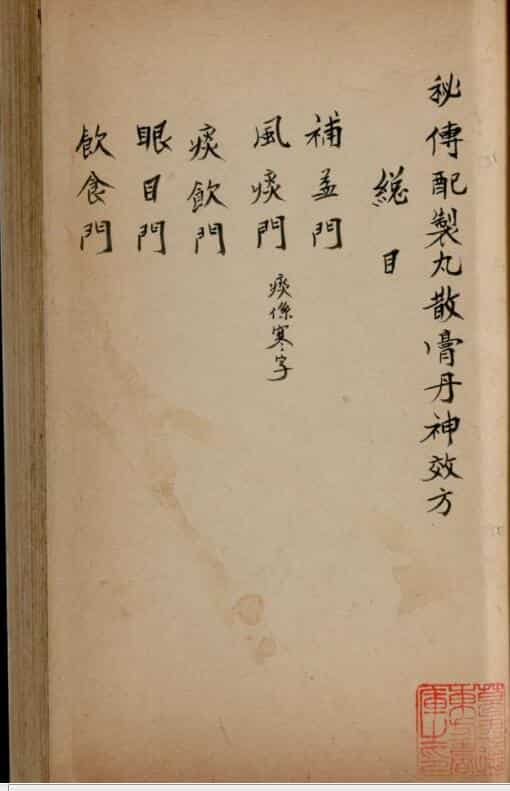 秘傳配製丸散膏丹神效方
縂目
補益門
風痰門 痰係寒字
痰飲門
眼目門
飲食門